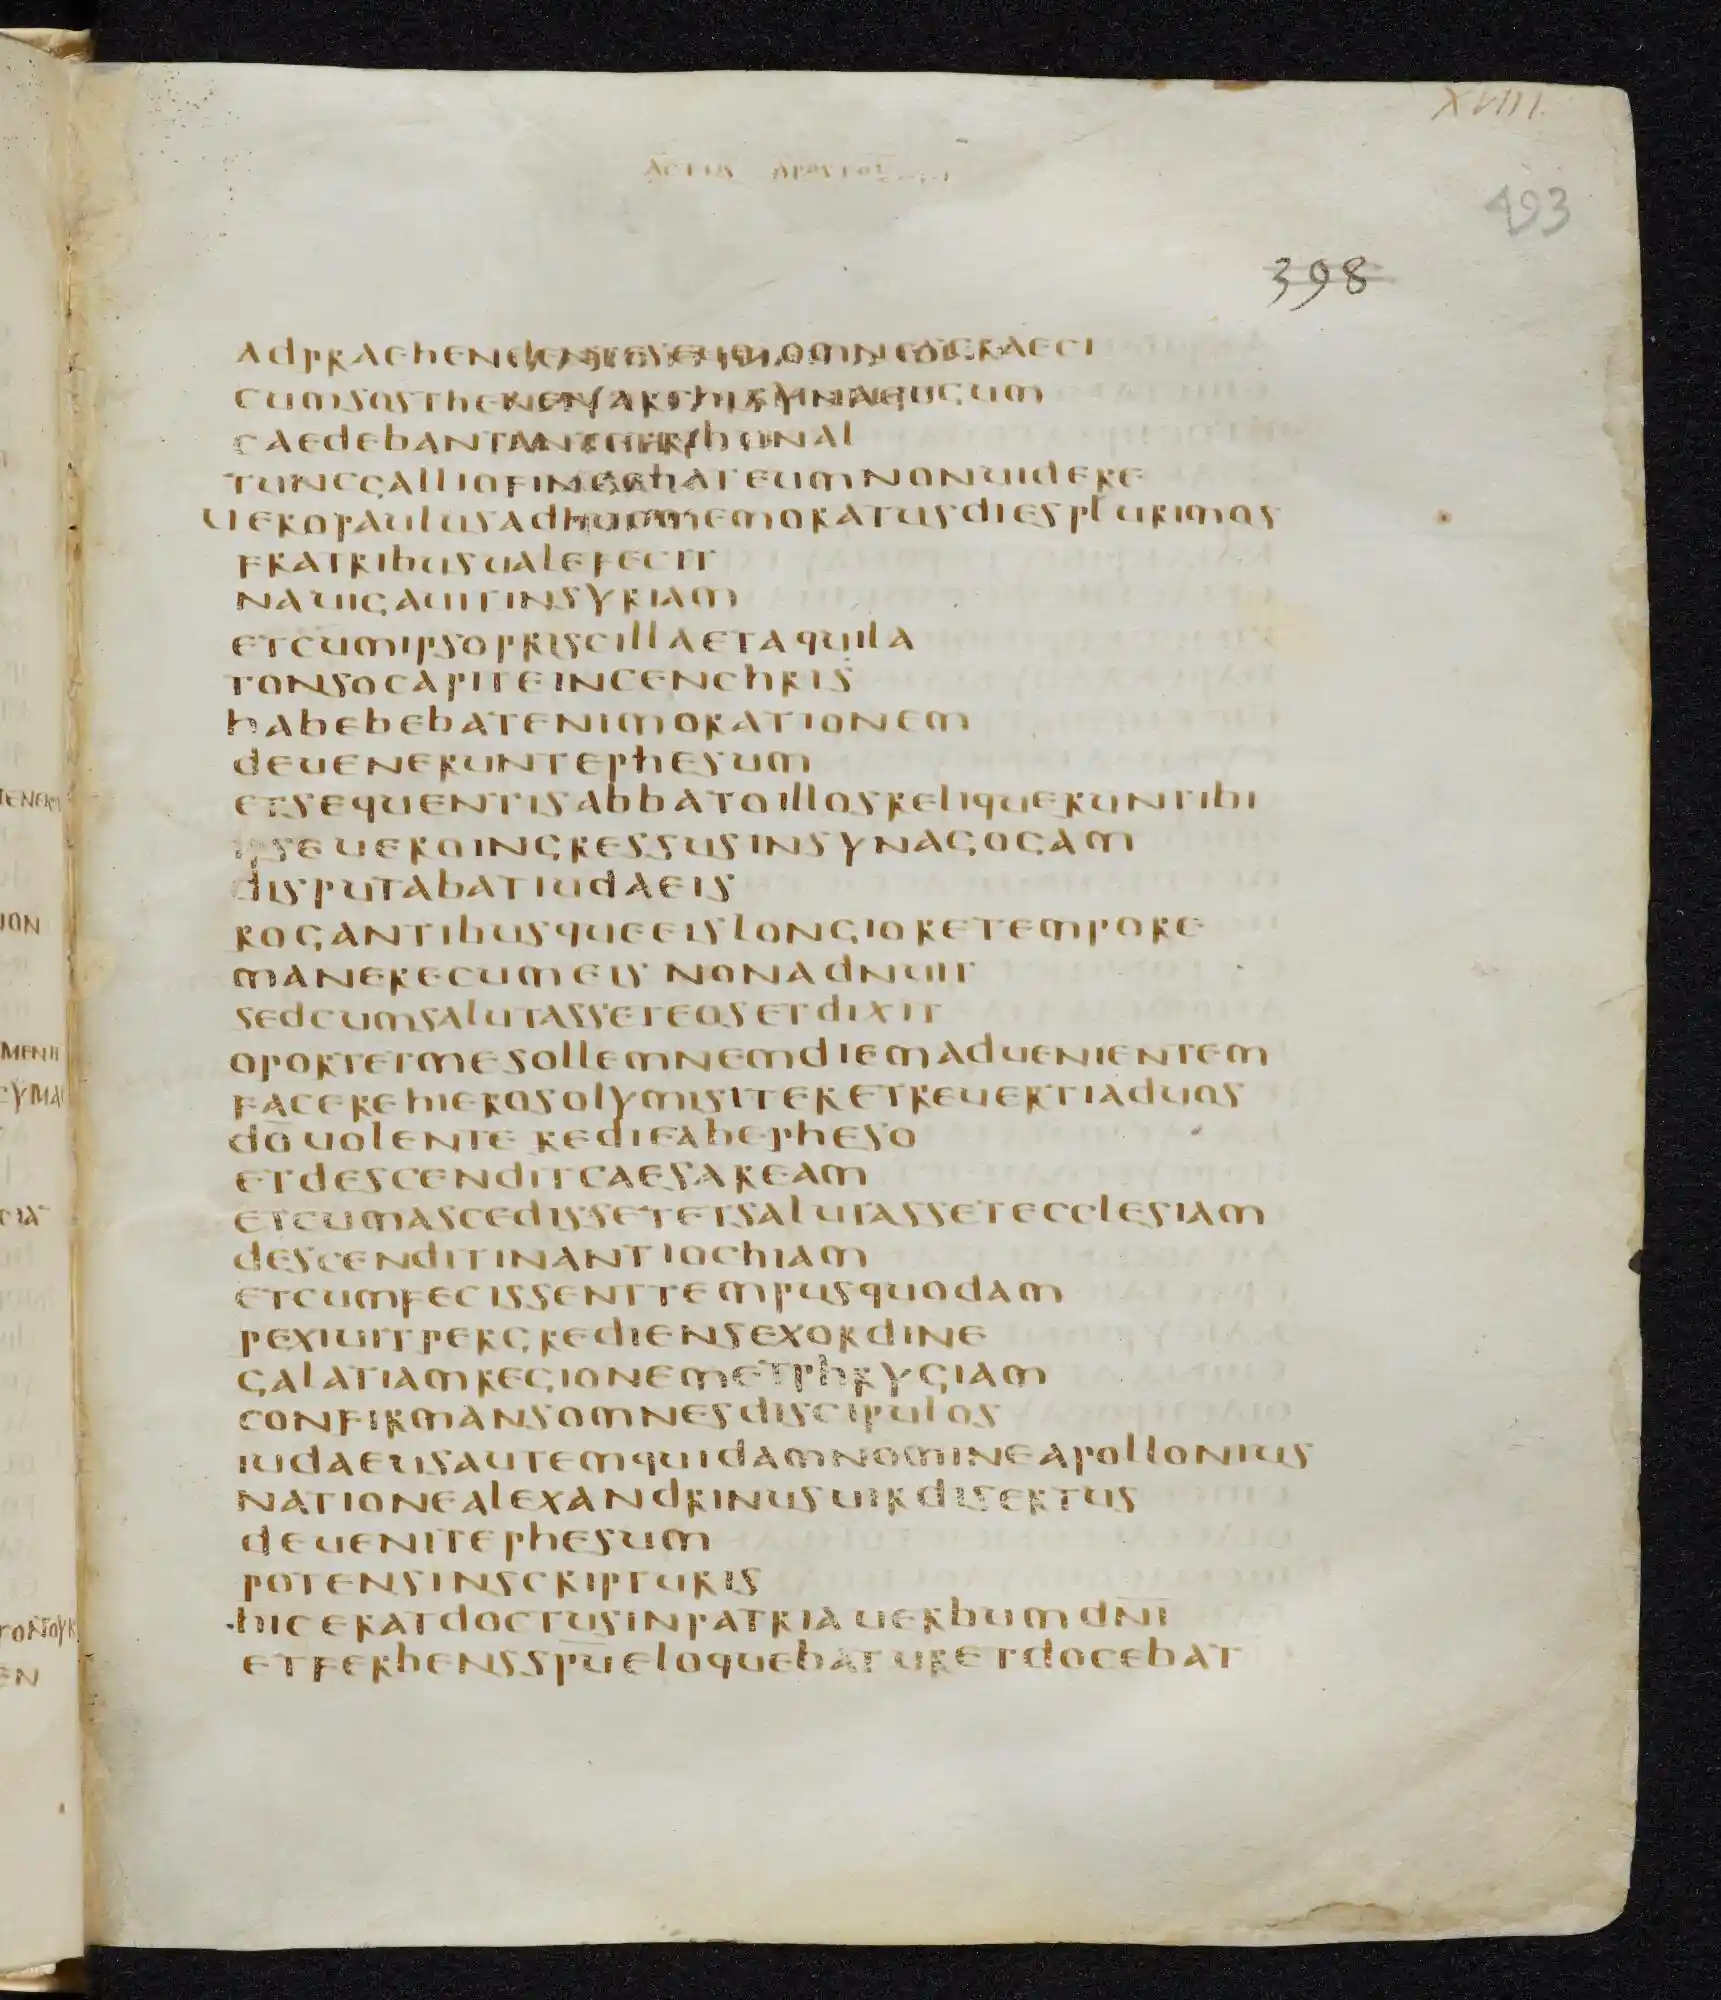 XVIII.
ACTUS APOSTOL
493
398
ADPRAEHENDENTESEUMOMNESGRAECI
CUMSOSTHENENARCHISYNAGOGUM
CAEDEBANTANTETRIBUNAL
TUNCGALLIOFINGEBATEUMNONUIDERE
UEROPAULUSADHUCMEMORATUSDIESPLURIMOS
FRATRIBUSUALEFECIT
NAUIGAUITINSYRIAM
ETCUMIPSOPRISCILLAETAQUILA
TONSOCAPITEINCENCHRIS
HABEBEBATENIMORATIONEM
DEUENERUNTEPHESUM
ETSEQUENTISABBATOILLOSRELIQUERUNTIBI
IPSEUEROINGRESSUSINSYNAGOGAM
DISPUTABATIUDAEIS
ROGANTIBUSQUEEISLONGIORETEMPORE
MANERECUMEIS NONADNUIT
SEDCUMSALUTASSETEOSETDIXIT
OPORTETMESOLLEMNEMDIEMADUENIENTEM
FACEREHIEROSOLYMISITERETREUERTIADUOS
DŌ UOLENTE REDIEABEPHESO
ETDESCENDITCAESAREAM
ETCUMASCEDISSETETSALUTASSETECCLESIAM
DESCENDITINANTIOCHIAM
ETCUMFECISSENTTEMPUSQUODAM
PEXIUITPERGREDIENSEXORDINE
GALATIAMREGIONEMETPHRYGIAM
CONFIRMANSOMNESDISCIPULOS
IUDAEUSAUTEMQUIDAMNOMINEAPOLLONIUS
NATIONEALEXANDRINUSUIRDISERTUS
DEUENITEPHESUM
POTENSINSCRIPTURIS
·HICERATDOCTUSINPATRIAUERBUMDN̄I
ETFERBENSSPŪELOQUEBATURETDOCEBAT